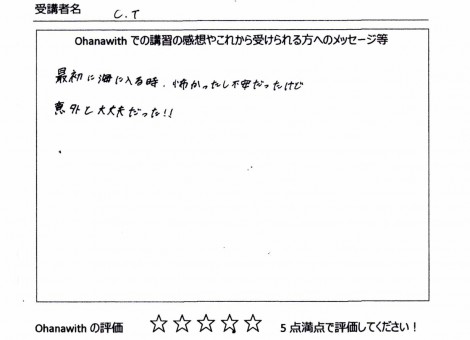 受講者名 C.T
Ohanawith での講習の感想やこれから受けられる方へのメッセージ等
最初に海に入る時、怖かったし不安だったけど
意外と大丈夫だった!!
Ohanawith の評価 ☆☆☆☆☆ 5 点満点で評価してください！